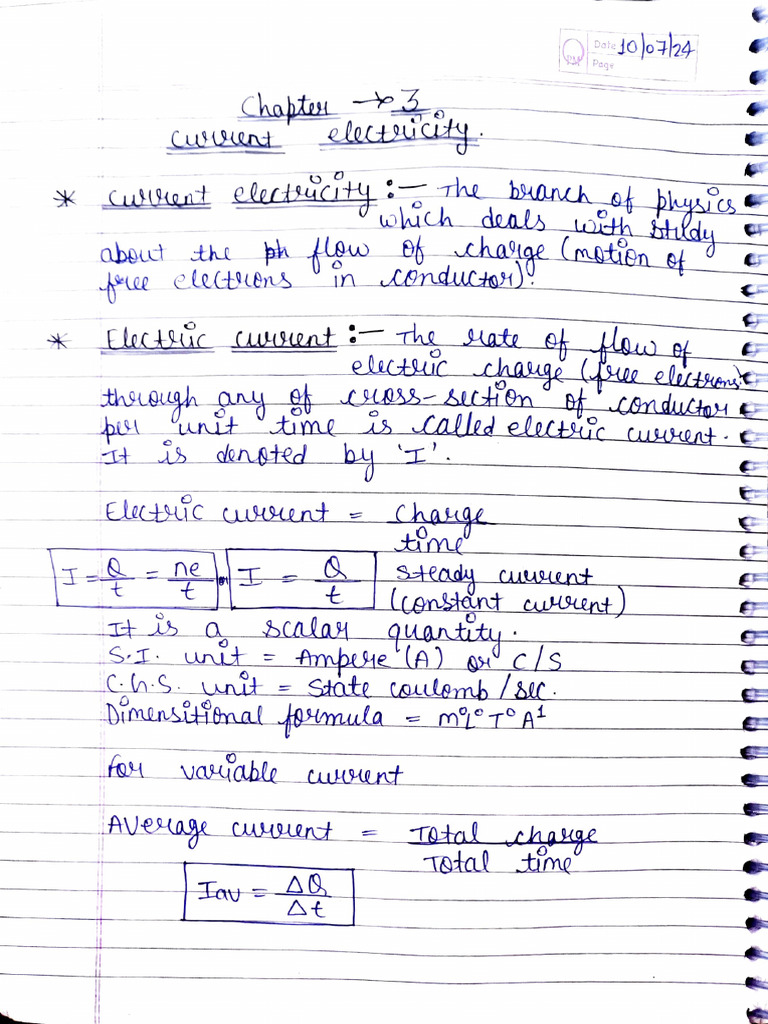 Date 10/07/24
Page
Chapter → 3
current electricity.
* current electricity :- The branch of physics
which deals with study
about the ph flow of charge (motion of
free electrons in conductor).
* Electric current :- The rate of flow of
electric charge (free electrons)
through any of cross-section of conductor
per unit time is called electric current.
It is denoted by 'I'.
Electric current = charge
time
I = Q/t = ne/t or I = Q/t steady current
(constant current)
It is a scalar quantity.
S.I. unit = Ampere (A) or C/S
C.G.S. unit = State coulomb/sec.
Dimensitional formula = M⁰L⁰T⁰A¹
for variable current
Average current = Total charge
Total time
Iav = ΔQ/Δt